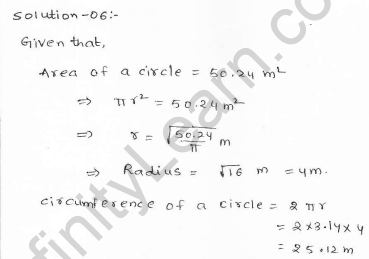 Solution-06:-
Given that,
Area of a circle = 50.24 m²
⇒ πr² = 50.24 m²
⇒ r = √(50.24/π) m
⇒ Radius = √16 m = 4m.
Circumference of a circle = 2πr
= 2×3.14×4
= 25.12 m
finityLearn.com